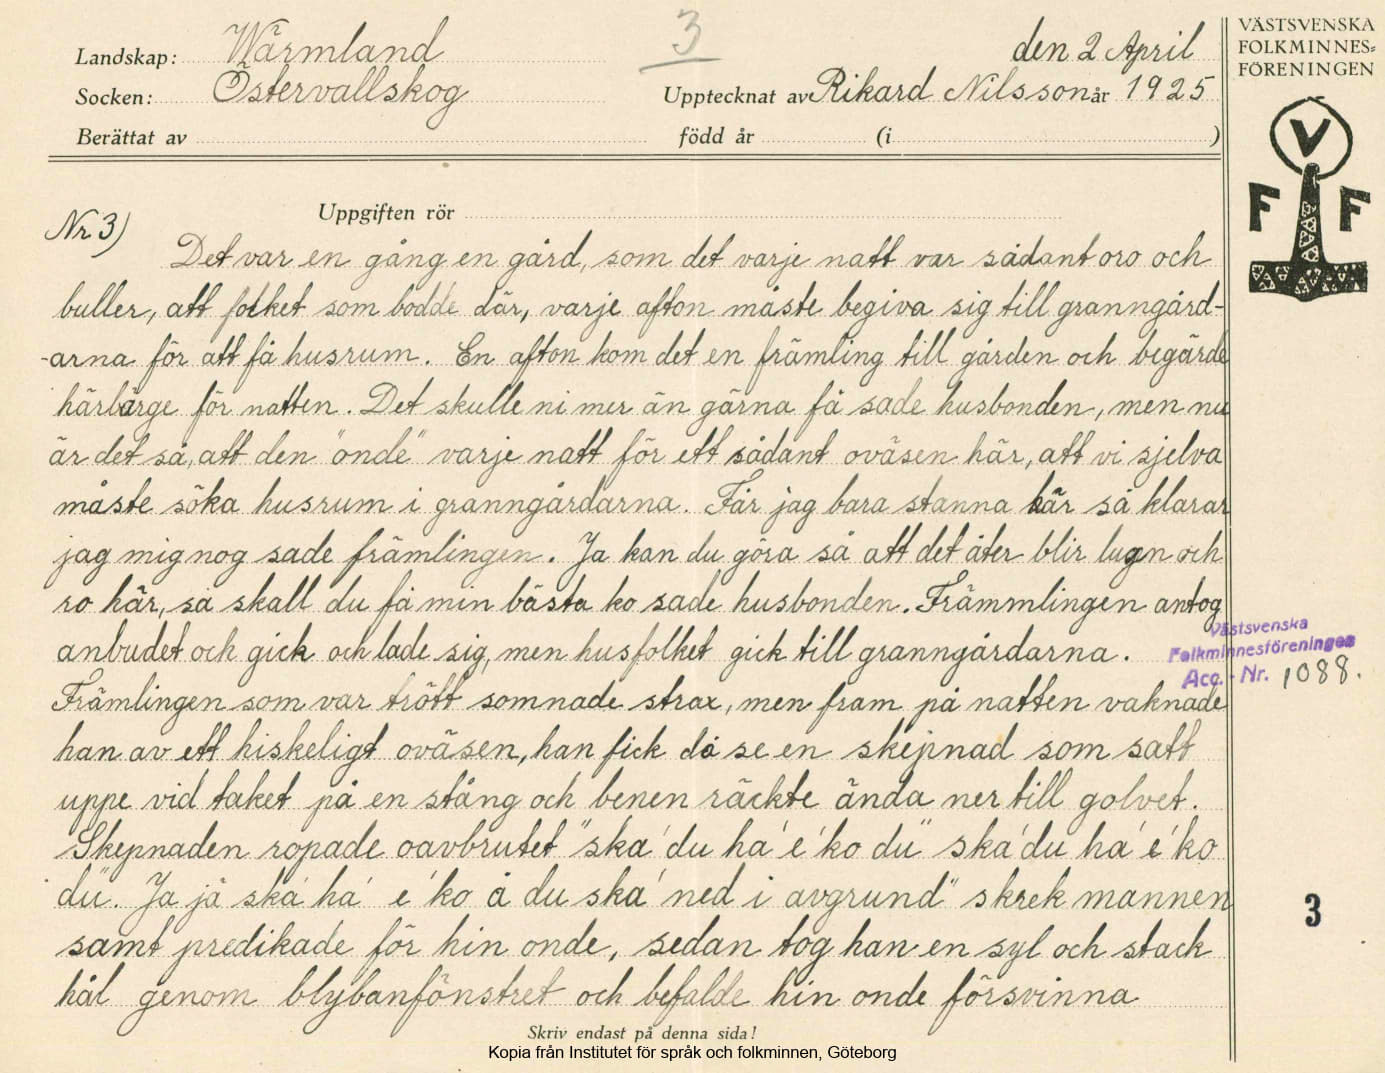 3
Landskap: Wärmland
den 2 April
Socken: Östervallskog
Upptecknat av Rikard Nilsson år 1925
Berättat av född år (i )
VÄSTSVENSKA
FOLKMINNES=
FÖRENINGEN
V
F F
Uppgiften rör
Nr 3)
Det var en gång en gård, som det varje natt var sådant oro och
buller, att folket som bodde där, varje afton måste begiva sig till granngård-
-arna för att få husrum. En afton kom det en främling till gården och begärde
härbärge för natten. Det skulle ni mer än gärna få sade husbonden, men nu
är det så, att den "onde" varje natt för ett sådant oväsen här, att vi sjelva
måste söka husrum i granngårdarna. Får jag bara stanna här så klarar
jag mig nog sade främlingen. Ja kan du göra så att det åter blir lugn och
ro här, så skall du få min bästa ko sade husbonden. Främmlingen antog
anbudet och gick och lade sig, men husfolket gick till granngårdarna.
Västsvenska
Folkminnesföreningen
Acc. - Nr. 1088.
Främlingen som var trött somnade strax, men fram på natten vaknade
han av ett hiskeligt oväsen, han fick då se en skepnad som satt
uppe vid taket på en stång och benen räckte ända ner till golvet.
Skepnaden ropade oavbrutet "ska' du ha' e' ko du" ska' du ha' e' ko
du". Ja jä ska' ha' e' ko å du ska' ned i avgrund" skrek mannen
samt predikade för hin onde, sedan tog han en syl och stack
hål genom blybanfönstret och befalde hin onde försvinna
3
Skriv endast på denna sida!
Kopia från Institutet för språk och folkminnen, Göteborg